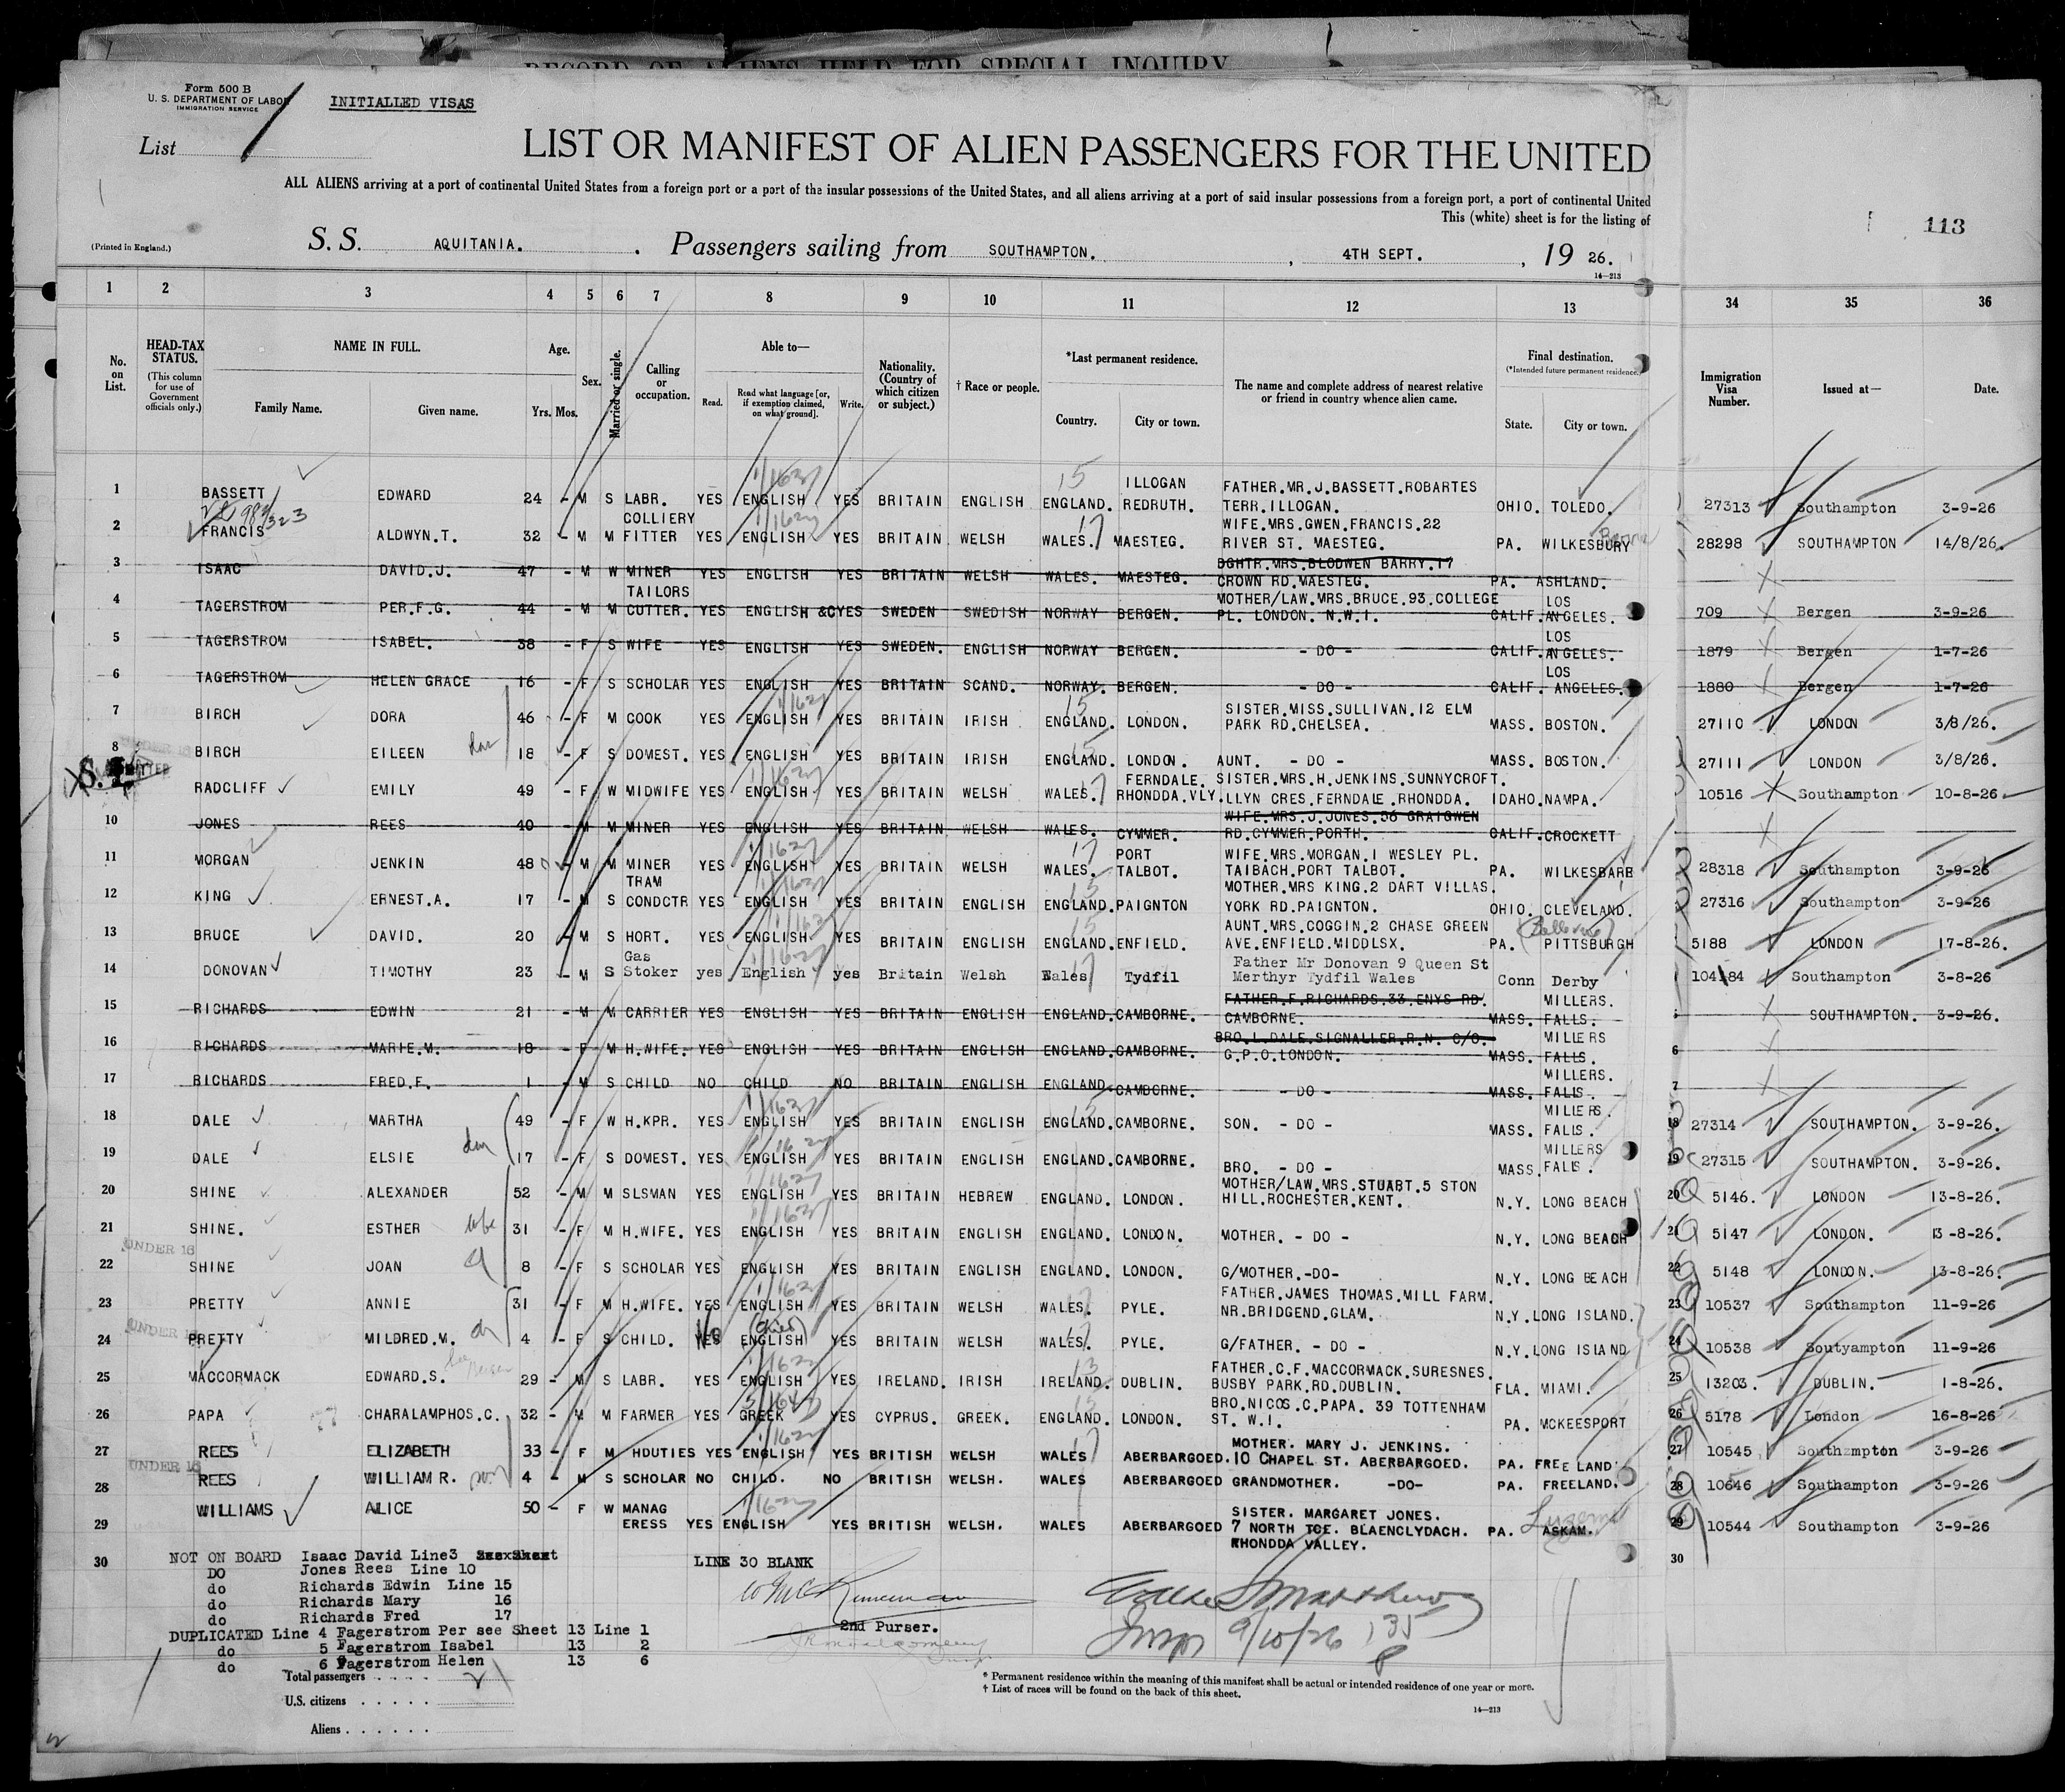 RECORD OF ALIENS HELD FOR SPECIAL INQUIRY
Form 500 B
U. S. DEPARTMENT OF LABOR
IMMIGRATION SERVICE
INITIALLED VISAS
List
LIST OR MANIFEST OF ALIEN PASSENGERS FOR THE UNITED
ALL ALIENS arriving at a port of continental United States from a foreign port or a port of the insular possessions of the United States, and all aliens arriving at a port of said insular possessions from a foreign port, a port of continental United
This (white) sheet is for the listing of
113
(Printed in England.)
S. S. AQUITANIA. . Passengers sailing from SOUTHAMPTON. , 4TH SEPT. , 19 26.
14—213
1 2 3 4 5 6 7 8 9 10 11 12 13 34 35 36
No. on List.
HEAD-TAX STATUS.
(This column for use of Government officials only.)
NAME IN FULL.
Family Name. Given name.
Age.
Yrs. Mos.
Sex.
Married or single.
Calling or occupation.
Able to—
Read. Read what language [or, if exemption claimed, on what ground]. Write.
Nationality. (Country of which citizen or subject.)
† Race or people.
*Last permanent residence.
Country. City or town.
The name and complete address of nearest relative or friend in country whence alien came.
Final destination.
(*Intended future permanent residence.)
State. City or town.
Immigration Visa Number.
Issued at—
Date.
1 BASSETT EDWARD 24 - M S LABR. YES ENGLISH YES BRITAIN ENGLISH ENGLAND. ILLOGAN REDRUTH. FATHER.MR.J.BASSETT.ROBARTES TERR.ILLOGAN. OHIO. TOLEDO. 27313 Southampton 3-9-26
2 FRANCIS ALDWYN.T. 32 - M M COLLIERY FITTER YES ENGLISH YES BRITAIN WELSH WALES. MAESTEG. WIFE.MRS.GWEN.FRANCIS.22 RIVER ST. MAESTEG. PA. WILKESBURY 28298 SOUTHAMPTON 14/8/26.
3 ISAAC DAVID.J. 47 - M W MINER YES ENGLISH YES BRITAIN WELSH WALES. MAESTEG. DGHTR.MRS.BLODWEN BARRY.17 CROWN RD.MAESTEG. PA. ASHLAND.
4 TAGERSTROM PER.F.G. 44 - M M TAILORS CUTTER. YES ENGLISH &C YES SWEDEN SWEDISH NORWAY BERGEN. MOTHER/LAW.MRS.BRUCE.93.COLLEGE PL. LONDON. N.W.1. CALIF. LOS ANGELES. 709 Bergen 3-9-26
5 TAGERSTROM ISABEL. 38 - F S WIFE YES ENGLISH YES SWEDEN. ENGLISH NORWAY BERGEN. - DO - CALIF. LOS ANGELES. 1879 Bergen 1-7-26
6 TAGERSTROM HELEN GRACE 16 - F S SCHOLAR YES ENGLISH YES BRITAIN SCAND. NORWAY. BERGEN. - DO - CALIF. LOS ANGELES. 1880 Bergen 1-7-26
7 BIRCH DORA 46 - F M COOK YES ENGLISH YES BRITAIN IRISH ENGLAND. LONDON. SISTER.MISS.SULLIVAN.12 ELM PARK RD.CHELSEA. MASS. BOSTON. 27110 LONDON 3/8/26.
8 BIRCH EILEEN 18 - F S DOMEST. YES ENGLISH YES BRITAIN IRISH ENGLAND. LONDON. AUNT. - DO - MASS. BOSTON. 27111 LONDON 3/8/26.
RADCLIFF EMILY 49 - F W MIDWIFE YES ENGLISH YES BRITAIN WELSH WALES. FERNDALE. RHONDDA.VLY. SISTER.MRS.H.JENKINS.SUNNYCROFT. LLYN CRES.FERNDALE.RHONDDA. IDAHO. NAMPA. 10516 Southampton 10-8-26
10 JONES REES 40 - M M MINER YES ENGLISH YES BRITAIN WELSH WALES. CYMMER. WIFE.MRS.J.JONES.56 GRAIGWEN RD.CYMMER.PORTH. CALIF. CROCKETT
11 MORGAN JENKIN 48 - M M MINER YES ENGLISH YES BRITAIN WELSH WALES. PORT TALBOT. WIFE.MRS.MORGAN.1 WESLEY PL. TAIBACH.PORT TALBOT. PA. WILKESBARE 28318 Southampton 3-9-26
12 KING ERNEST.A. 17 - M S TRAM CONDCTR YES ENGLISH YES BRITAIN ENGLISH ENGLAND. PAIGNTON MOTHER.MRS KING.2 DART VILLAS. YORK RD.PAIGNTON. OHIO. CLEVELAND. 27316 Southampton 3-9-26
13 BRUCE DAVID. 20 - M S HORT. YES ENGLISH YES BRITAIN ENGLISH ENGLAND. ENFIELD. AUNT.MRS.COGGIN.2 CHASE GREEN AVE.ENFIELD.MIDDLSX. PA. (Bellevue) PITTSBURGH 5188 LONDON 17-8-26.
14 DONOVAN TIMOTHY 23 - M S Gas Stoker yes English yes Britain Welsh Wales Tydfil Father Mr Donovan 9 Queen St Merthyr Tydfil Wales Conn Derby 10484 Southampton 3-8-26
15 RICHARDS EDWIN 21 - M M CARRIER YES ENGLISH YES BRITAIN ENGLISH ENGLAND. CAMBORNE. FATHER.F.RICHARDS.33.ENYS RD. CAMBORNE. MASS. MILLERS. FALLS. SOUTHAMPTON. 3-9-26.
16 RICHARDS MARIE.M. 18 - F M H.WIFE. YES ENGLISH YES BRITAIN ENGLISH ENGLAND. CAMBORNE. BRO.L.DALE.SIGNALLER.R.N. C/O. G.P.O.LONDON. MASS. MILLERS FALLS. 6
17 RICHARDS FRED.F. 1 - M S CHILD NO CHILD NO BRITAIN ENGLISH ENGLAND. CAMBORNE. - DO - MASS. MILLERS. FALLS. 7
18 DALE MARTHA 49 - F W H.KPR. YES ENGLISH YES BRITAIN ENGLISH ENGLAND. CAMBORNE. SON. - DO - MASS. MILLERS. FALLS. 18 27314 SOUTHAMPTON. 3-9-26.
19 DALE ELSIE 17 - F S DOMEST. YES ENGLISH YES BRITAIN ENGLISH ENGLAND. CAMBORNE. BRO. - DO - MASS. MILLERS FALLS. 19 27315 SOUTHAMPTON. 3-9-26.
20 SHINE ALEXANDER 52 - M M SLSMAN YES ENGLISH YES BRITAIN HEBREW ENGLAND. LONDON. MOTHER/LAW.MRS.STUART.5 STON HILL.ROCHESTER.KENT. N.Y. LONG BEACH 20 5146. LONDON 13-8-26.
21 SHINE. ESTHER wife 31 - F M H.WIFE. YES ENGLISH YES BRITAIN ENGLISH ENGLAND. LONDON. MOTHER. - DO - N.Y. LONG BEACH 21 5147 LONDON. 13-8-26.
UNDER 16
22 SHINE JOAN 8 - F S SCHOLAR YES ENGLISH YES BRITAIN ENGLISH ENGLAND. LONDON. G/MOTHER.-DO- N.Y. LONG BEACH 22 5148 LONDON. 13-8-26.
23 PRETTY ANNIE 31 - F M H.WIFE. YES ENGLISH YES BRITAIN WELSH WALES. PYLE. FATHER.JAMES THOMAS.MILL FARM. NR.BRIDGEND.GLAM. N.Y. LONG ISLAND. 23 10537 Southampton 11-9-26
UNDER 16
24 PRETTY MILDRED.M. 4 - F S CHILD. YES No ENGLISH (Child) YES BRITAIN WELSH WALES. PYLE. G/FATHER. - DO - N.Y. LONG ISLAND 24 10538 Soutyampton 11-9-26
25 MACCORMACK EDWARD.S. 29 - M S LABR. YES ENGLISH YES IRELAND. IRISH IRELAND. DUBLIN. FATHER.C.F.MACCORMACK.SURESNES. BUSBY PARK.RD.DUBLIN. FLA. MIAMI. 25 13203. DUBLIN. 1-8-26.
26 PAPA CHARALAMPHOS.C. 32 - M M FARMER YES GREEK YES CYPRUS. GREEK. ENGLAND. LONDON. BRO.NICOS.C.PAPA. 39 TOTTENHAM ST. W.1. PA. MCKEESPORT 26 5178 London 16-8-26
27 REES ELIZABETH 33 - F M HDUTIES YES ENGLISH YES BRITISH WELSH WALES ABERBARGOED. MOTHER. MARY J. JENKINS. 10 CHAPEL ST. ABERBARGOED. PA. FREELAND. 27 10545 Southampton 3-9-26
UNDER 16
28 REES WILLIAM R. 4 - M S SCHOLAR NO CHILD. NO BRITISH WELSH. WALES ABERBARGOED GRANDMOTHER. -DO- PA. FREELAND. 28 10646 Southampton 3-9-26
29 WILLIAMS ALICE 50 - F W MANAG ERESS YES ENGLISH YES BRITISH WELSH. WALES ABERBARGOED SISTER. MARGARET JONES. 7 NORTH TCE. BLAENCLYDACH. RHONDDA VALLEY. PA. ASKAM. Luzerne 29 10544 Southampton 3-9-26
30 LINE 30 BLANK 30
NOT ON BOARD Isaac David Line3
DO Jones Rees Line 10
do Richards Edwin Line 15
do Richards Mary 16
do Richards Fred 17
DUPLICATED Line 4 Fagerstrom Per see Sheet 13 Line 1
do 5 Fagerstrom Isabel 13 2
do 6 Fagerstrom Helen 13 6
2nd Purser.
9/10/26
Total passengers . . . . 21
U.S. citizens . . . . .
Aliens . . . . . .
* Permanent residence within the meaning of this manifest shall be actual or intended residence of one year or more.
† List of races will be found on the back of this sheet.
14—213